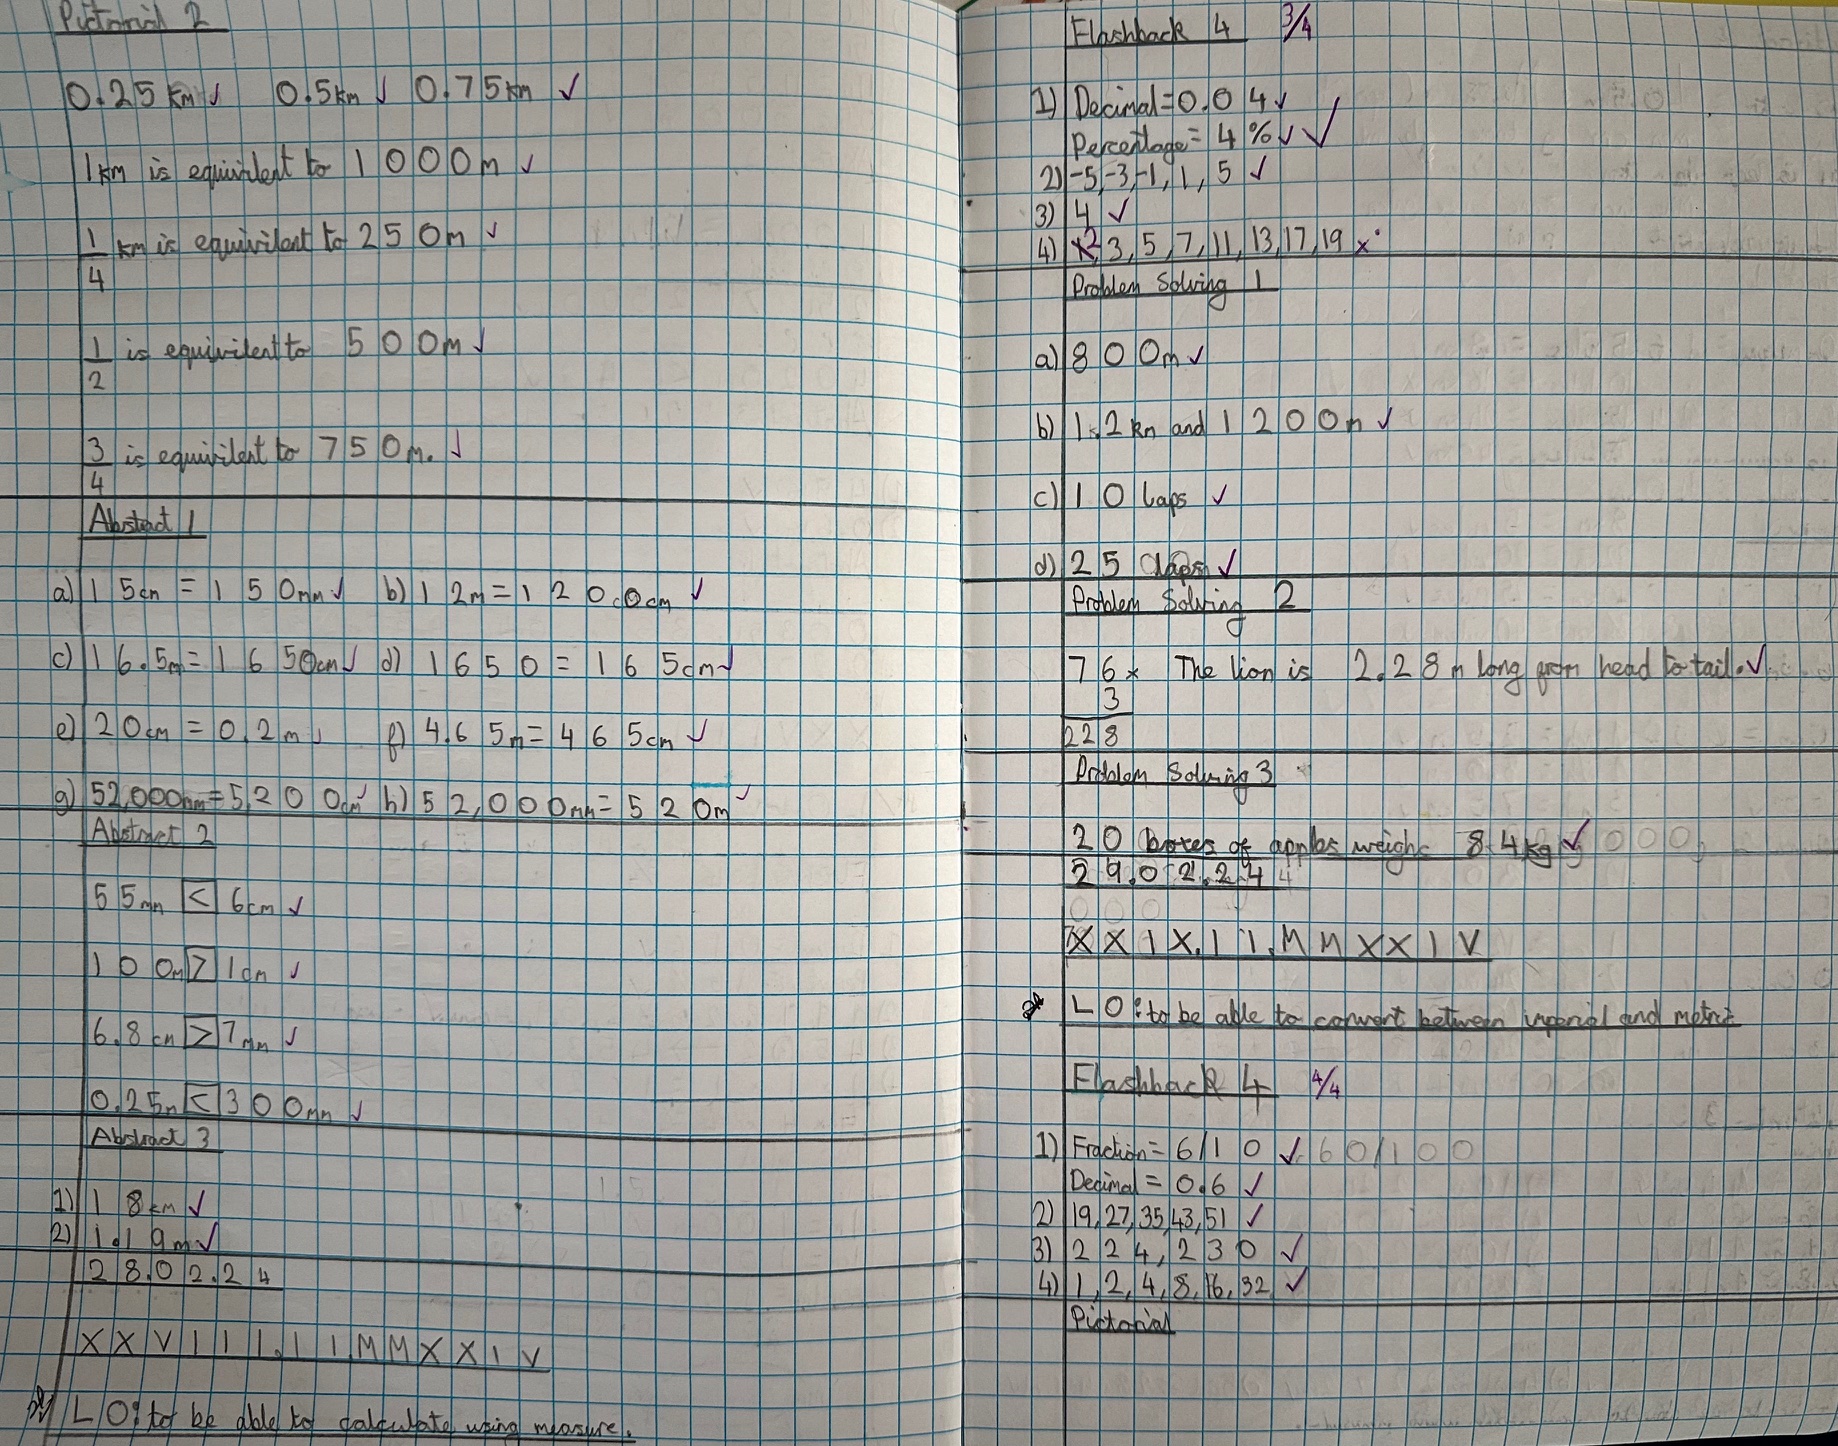 Pictorial 2
0.25km ✓ 0.5km ✓ 0.75km ✓
1km is equivilent to 1000m ✓
1/4 km is equivilent to 250m ✓
1/2 is equivilent to 500m ✓
3/4 is equivilent to 750m. ✓
Abstract 1
a) 15cm = 150mm ✓ b) 12m = 1200cm ✓
c) 16.5m = 1650cm ✓ d) 1650 = 165cm ✓
e) 20cm = 0.2m ✓ f) 4.65m = 465cm ✓
g) 52,000mm = 5,200cm ✓ h) 52,000mm = 520m ✓
Abstract 2
55mm < 6cm ✓
100m > 1cm ✓
6.8cm > 7mm ✓
0.25m < 300mm ✓
Abstract 3
1) 18km ✓
2) 1.19m ✓
28.02.24
XXVIII.II.MMXXIV
LO: to be able to calculate using measure.
Flashback 4 3/4
1) Decimal = 0.04 ✓
Percentage = 4% ✓ ✓
2) -5,-3,-1,1,5 ✓
3) 4 ✓
4) 2, 3, 5, 7, 11, 13, 17, 19 x
Problem Solving 1
a) 800m ✓
b) 1.2km and 1200m ✓
c) 10 laps ✓
d) 25 laps ✓
Problem Solving 2
76x The lion is 2.28m long from head to tail. ✓
3
228
Problem Solving 3
20 boxes of apples weighs 84kg ✓
29.02.24
XXIX.II.MMXXIV
LO: to be able to convert between imperial and metric
Flashback 4 4/4
1) Fraction = 6/10 ✓ 60/100
Decimal = 0.6 ✓
2) 19,27,35,43,51 ✓
3) 224, 230 ✓
4) 1, 2, 4, 8, 16, 32 ✓
Pictorial